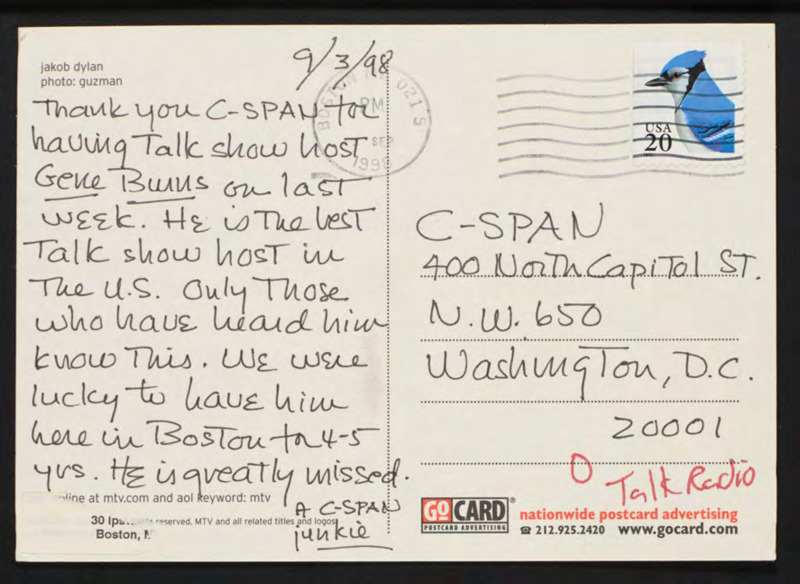 jakob dylan
photo: guzman
9/3/98
Thank you C-SPAN for
having Talk show host
Gene Burns on last
week. He is the best
Talk show host in
The U.S. Only Those
who have heard him
know This. We were
lucky to have him
here in Boston for 4-5
yrs. He is greatly missed.
A C-SPAN
junkie
online at mtv.com and aol keyword: mtv
reserved. MTV and all related titles and logos
30 Ips
Boston,
BOSTON 021'5
PM
SEP
1998
USA
20
C-SPAN
400 North Capitol ST.
N.W. 650
Washington, D.C.
20001
O Talk Radio
GOCARD®
POSTCARD ADVERTISING
nationwide postcard advertising
☎ 212.925.2420 www.gocard.com